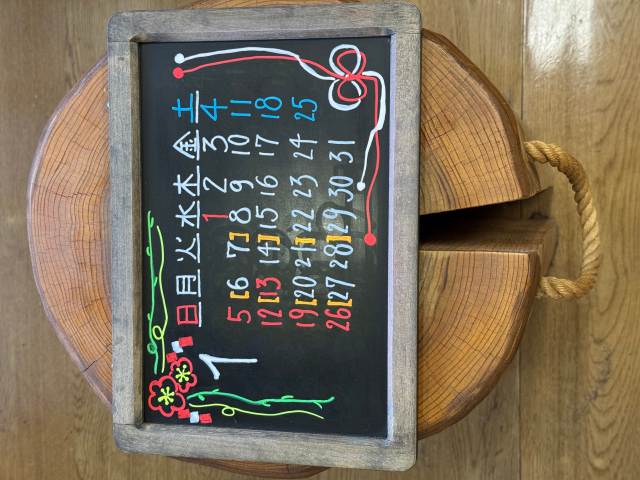 1
日 月 火 水 木 金 土
1 2 3 4
5 [6 7] 8 9 10 11
12 [13 14] 15 16 17 18
19 [20 21] 22 23 24 25
26 [27 28] 29 30 31